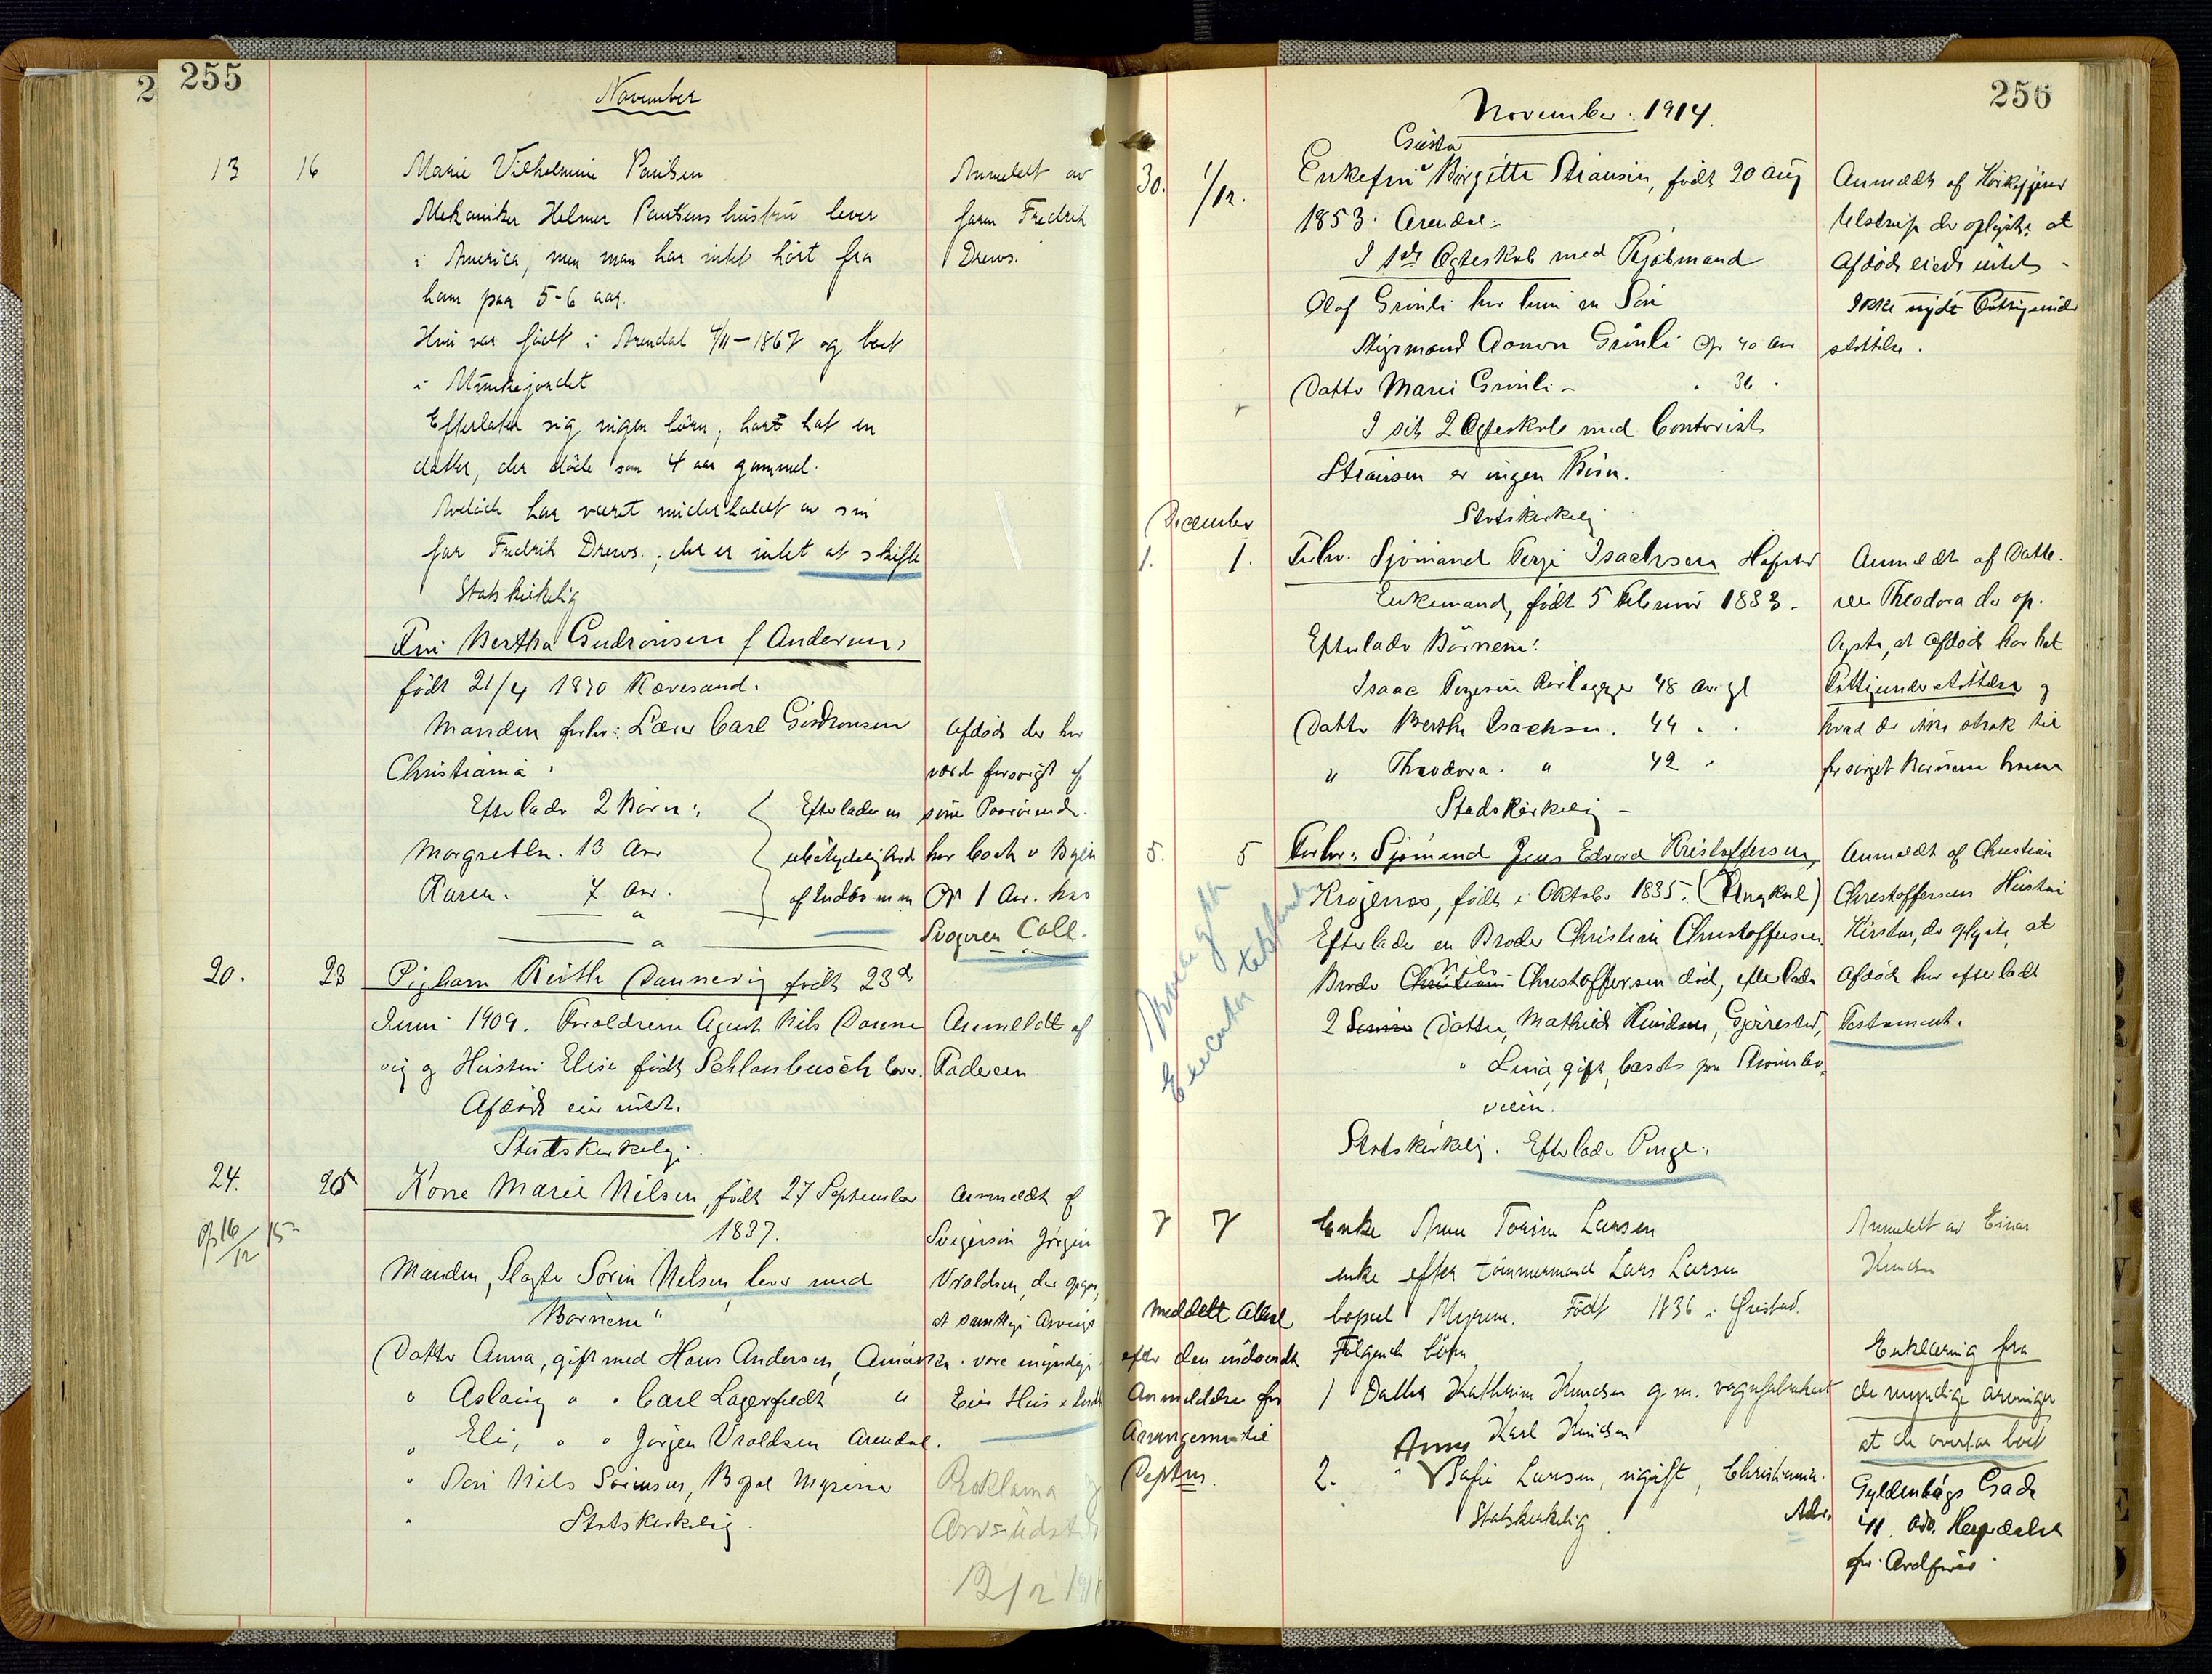 255
November
13 16 Marie Vilhelmine Paulsen
Mekaniker Helmer Paulsens hustru lever
i America, men man har intet hørt fra
ham paa 5-6 aar.
Hun var født i Arendal 4/11-1867 og boet
i Munkejordet
Efterlater sig ingen børn, hart hat en
datter, der døde som 4 aar gammel.
Avdøde har været underholdt av sin
far Fredrik Drews.; der er intet at skifte
Statskirkelig
Anmeldt av
faren Fredrik
Drews.
Fru Bertha Gudmonsen f Andersen,
født 21/4 1870 Kovesand.
Manden forhv: Lærer Carl
Christiania.
Efterlader 2 Børn:
Margrethe. 13 Aar
Karen. 7 Aar.
Efterlader en
ubetydelighed
af Indbo men
Afdøde der har
været forsørget af
sine Paarørende.
har boet v Byen
Op 1 Aar. hos
Svogeren Call.
20. 23 Pigbarn Ruth Dannevig født 23de
Juni 1909. Forældrene Agent Nils Danne
vig og Hustru Elise født Schlanbusch lever.
Afdøde eier intet.
Statskirkelig.
Anmeldt af
Faderen
24. 25 Kone Marie Nilsen, født 27 September
1837.
Op 16/12 15
Manden, Slagter Søren Nilsen lever med
Børnene"
Datter Anna, gift med Hans Andersen, Amerika.
" Aslaug " " Carl Lagerfeldt "
" Eli, " " Jørgen Vraldsen Arendal.
" Søn Nils Sørensen, Bopæl Myrene
" Statskirkelig.
Anmeldt af
Svigersøn Jørgen
Vraldsen, der opgav,
at samtlige Arvinger
vare myndige
Eier Hus & Indbo
Proklama og
Arv=udsted
12/12 191
256
November. 1914.
30. 1/12. Enkefru Gusta Birgitte Strausen, født 20 Aug
1853. Arendal.
I 1ste Ægteskab med Kjøbmand
Olaf Grønli har hun en Søn
Styrmand Aanon Grønli Op 40 Aar
Datter Marie Grønli - " 36 "
I sit 2 Ægteskab med Contorist
Strausen er ingen Børn.
Statskirkelig
Anmeldt af Kirketjener
Ulstrup der oplyste, at
Afdøde eiede intet -
Ikke nydt Fattigunder
støttelse.
December
1. 1. Forhv. Sjømand Terje Isachsen Hafsted
Enkemand, født 5 Februar 1833.
Efterlader Børnene:
Isaac Terjesen 48 Aar gl
Datter Berthe Isachsen. 44 " "
" Theodora. " 42 "
Statskirkelig -
Anmeldt af Datte-
ren Theodora der op-
lyste, at Afdøde har hat
Fattigunderstøttelse og
hvad der ikke strak til
forsørget Børnene ham
5. 5 Forhv: Sjømand Jens Edvard Kristoffersen,
Krøgenes, født i Oktobr 1835. (Ungkarl)
Efterlader en Broder Christian Christoffersen
Broder Christian Nils Christoffersen død, efterlader
2 Sønner Døttre, Mathilde Knudsen, Gjerrestad,
" Lina, gift, bosat paa Strømsbo-
veien.
Statskirkelig. Efterlader Penge.
Anmeldt af Christian
Christoffersens Hustru
Kirsten, der oplyste, at
Afdøde har efterladt
Testament.
7 7 Enke Anne Tomine Larsen
enke efter tømmermand Lars Larsen
bopæl Myrene. Født 1836 i Øiestad.
Følgende børn
1 Datter Kathrine Knudsen g. m. vognfabrikant
Karl Knudsen
2. " Anne Sofie Larsen, ugift, Christiania.
Statskirkelig. Adr.
Meddelt Attest
efter den indsendte
Anmeldelse for
Arrangement til
Anmeldt av Einar
Knudsen
Erklæring fra
de myndige arvinger
at de overtar boet
Gyldenløgs Gade
41.